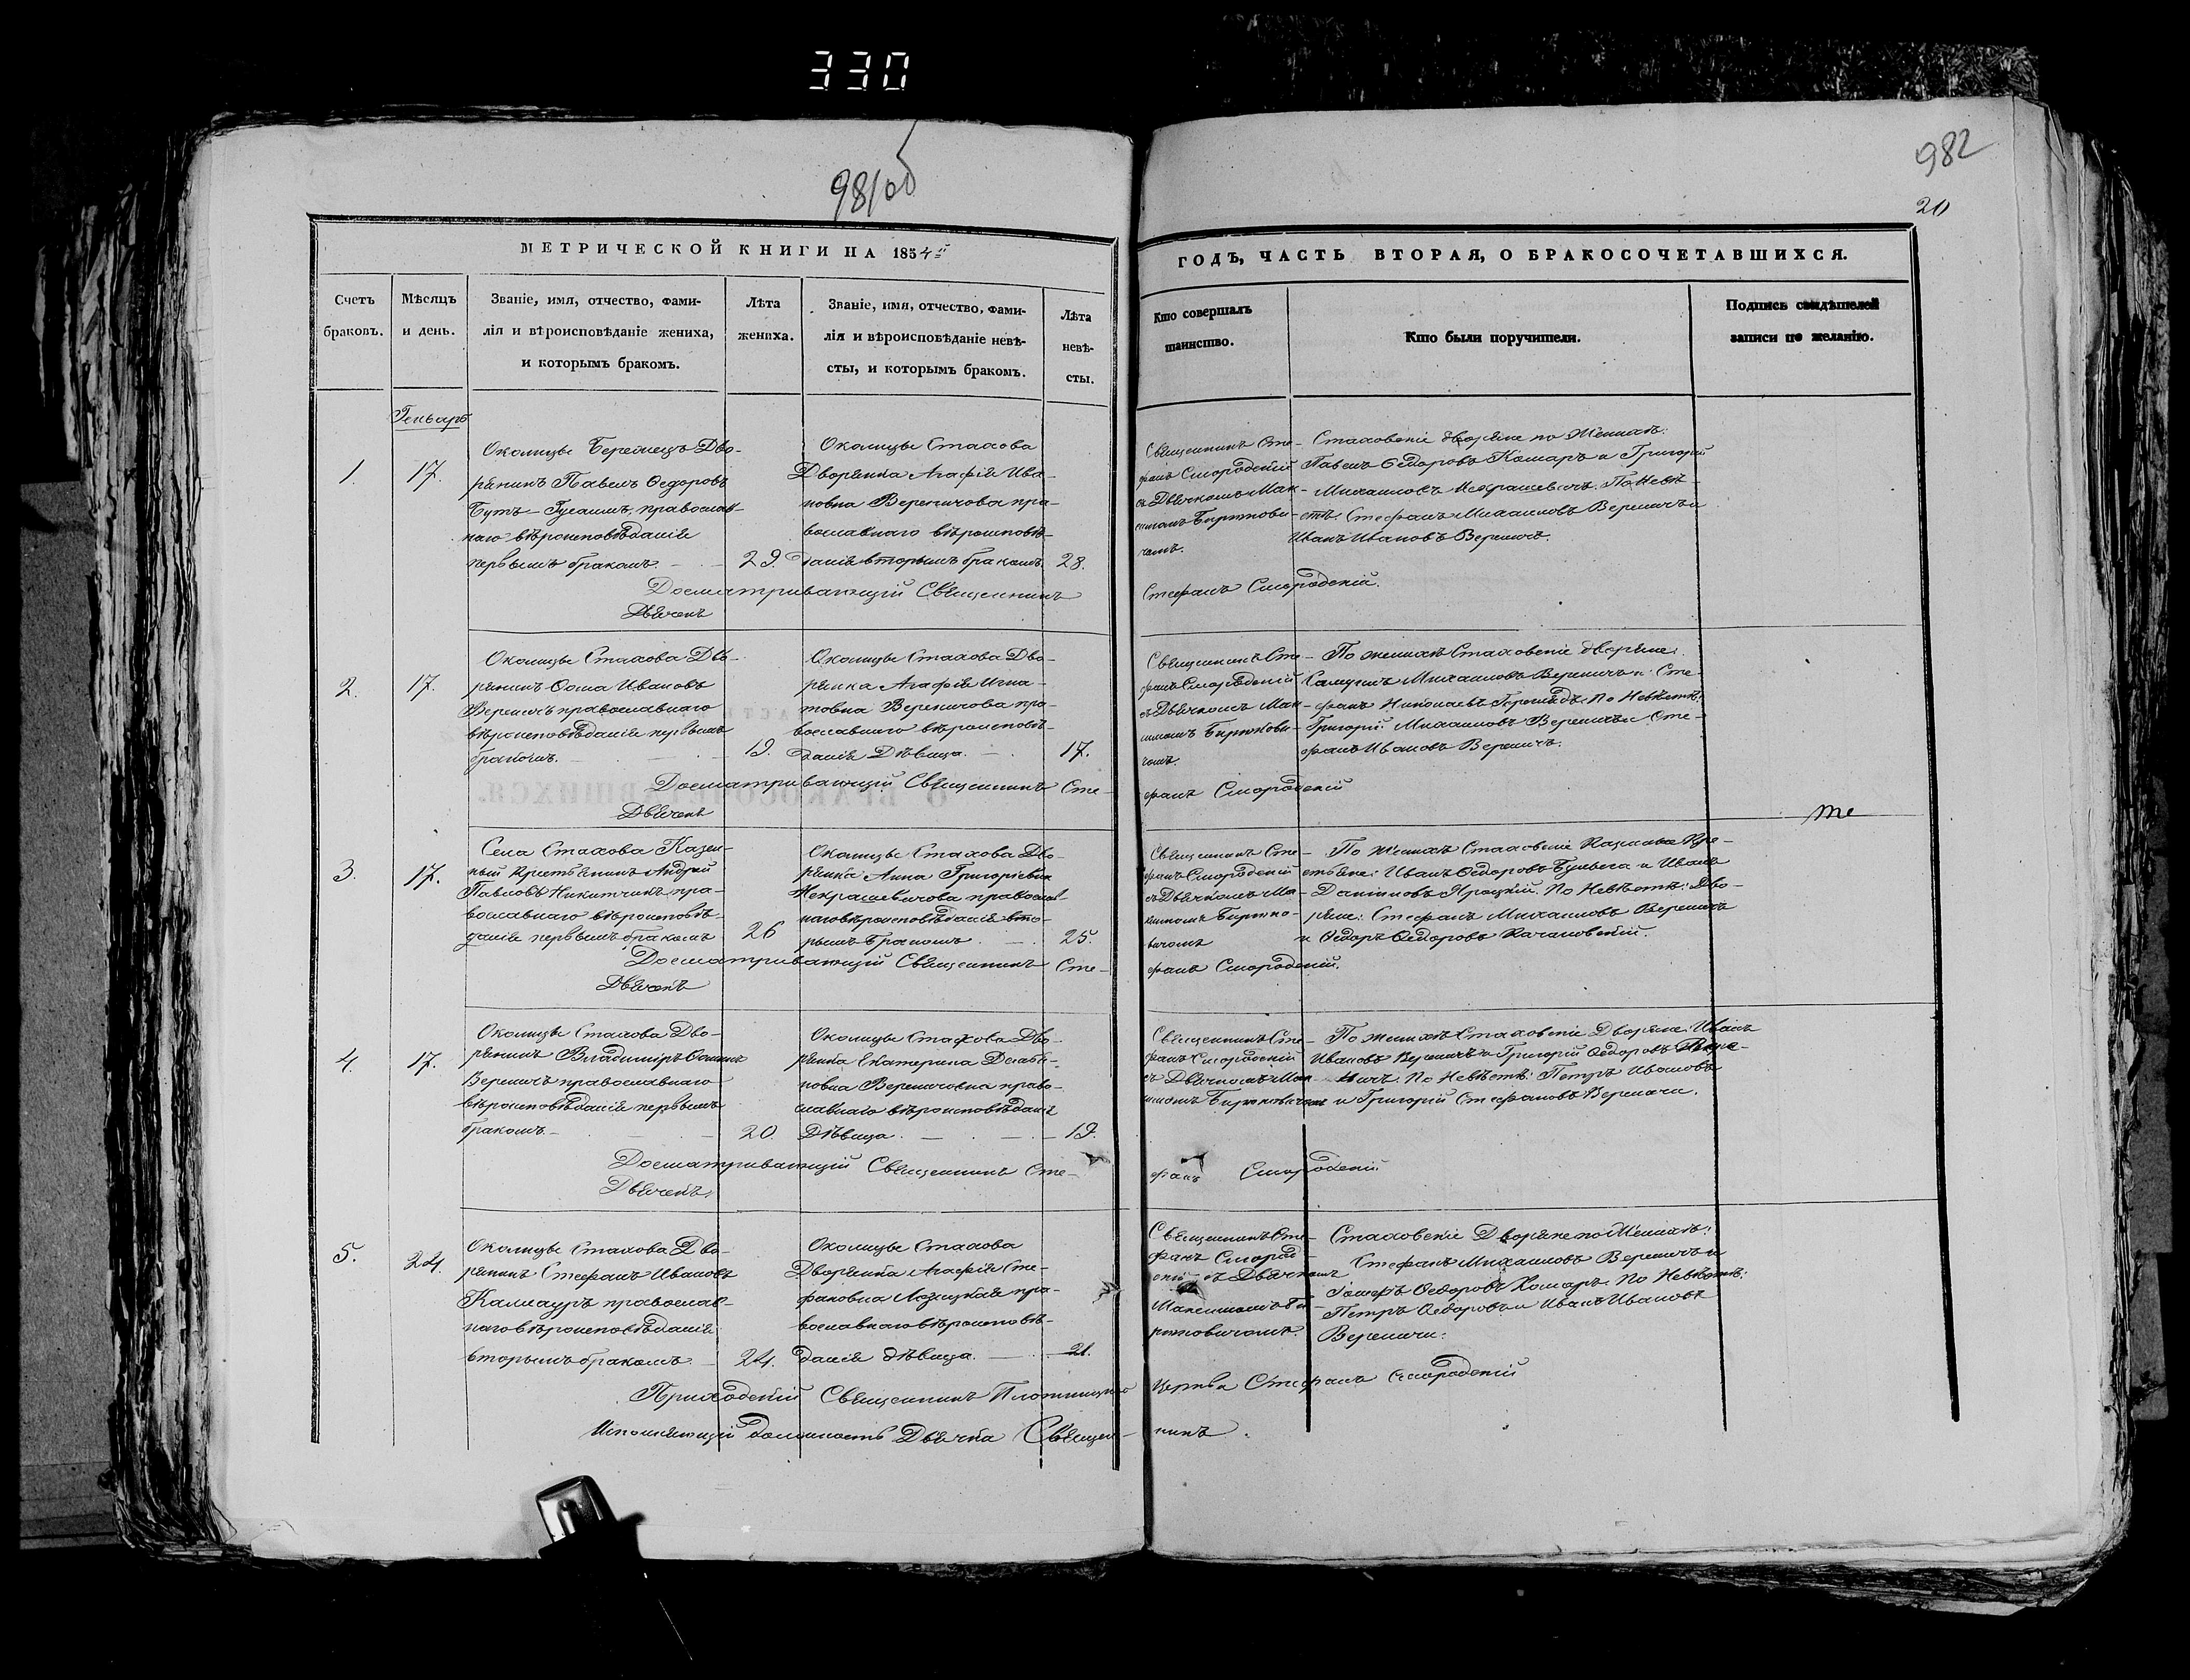 330
981об
982
20
МЕТРИЧЕСКОЙ КНИГИ НА 1854й
ГОДЪ, ЧАСТЬ ВТОРАЯ, О БРАКОСОЧЕТАВШИХСЯ.
Счетъ
браковъ.
Мѣсяцъ
и день.
Званіе, имя, отчество, фами-
лія и вѣроисповѣданіе жениха,
и которымъ бракомъ.
Лѣта
жениха.
Званіе, имя, отчество, фами-
лія и вѣроисповѣданіе невѣ-
сты, и которымъ бракомъ.
Лѣта
невѣ-
сты.
Кто совершалъ
таинство.
Кто были поручители.
Подпись свидѣтелей
записи по желанію.
Генварь
1.
17.
Околицы Бережецъ Дво-
рянинъ Павелъ Ѳедоровъ
Бутъ-Гусаимъ, православ-
наго вѣроисповѣданія
первымъ бракомъ.
29.
Околицы Стахова
Дворянка Агафія Ива-
новна Вереничова пра-
вославнаго вѣроисповѣ-
данія вторымъ бракомъ.
28.
Священникъ Сте-
фанъ Смородскій
съ Дьячкомъ Мак-
симомъ Бирюкови-
чемъ.
Стаховскіе дворяне по Женихѣ:
Павелъ Ѳедоровъ Комаръ и Григорій
Михаиловъ Некрашевичъ. По Невѣ-
стѣ: Стефанъ Михаиловъ Вереничъ и
Иванъ Ивановъ Вереничъ.
Досматривающій Священникъ
Стефанъ Смородскій.
Дьячекъ
2.
17.
Околицы Стахова Дво-
рянинъ Ѳома Ивановъ
Вереничъ православнаго
вѣроисповѣданія первымъ
бракомъ.
19.
Околицы Стахова Дво-
рянка Агафія Игна-
товна Вереничова пра-
вославнаго вѣроисповѣ-
данія Дѣвица.
17.
Священникъ Сте-
фанъ Смородскій
съ Дьячкомъ Мак-
симомъ Бирюкови-
чемъ.
По женихѣ Стаховскіе дворяне:
Михаиловъ Вереничъ и Сте-
фанъ Николаевъ По Невѣстѣ:
Григорій Михаиловъ Вереничъ и Сте-
фанъ Ивановъ Вереничъ.
Досматривающій Священникъ Сте-
фанъ Смородскій
Дьячекъ
3.
17.
Села Стахова Казен-
ный Крестьянинъ Андрей
Павловъ Никитчикъ пра-
вославнаго вѣроисповѣ-
данія первымъ бракомъ
26
Околицы Стахова Дво-
рянка Анна Григорьева
Некрашевичова православ-
наго вѣроисповѣданія вто-
рымъ бракомъ.
25.
Священникъ Сте-
фанъ Смородскій
съ Дьячкомъ Ма-
ксимомъ Бирюко-
вичемъ
По Женихѣ Стаховскіе Казенные Кре-
стьяне: Иванъ Ѳедоровъ и Иванъ
Данииловъ Ярацкій. По Невѣстѣ: Дво-
ряне: Стефанъ Михаиловъ Вереничъ
и Ѳедоръ Ѳедоровъ Качановскій.
Досматривающій Священникъ Сте-
фанъ Смородскій.
Дьячекъ
4.
17.
Околицы Стахова Дво-
рянинъ Владиміръ Ѳоминъ
Вереничъ православнаго
вѣроисповѣданія первымъ
бракомъ.
20.
Околицы Стахова Дво-
рянка Екатерина
Вереничовна право-
славнаго вѣроисповѣданія
Дѣвица.
19.
Священникъ Сте-
фанъ Смородскій
съ Дьячкомъ Мак-
симомъ Бирюковичемъ
По женихѣ Стаховскіе Дворяне: Иванъ
Ивановъ Вереничъ и Григорій Ѳедоровъ
По Невѣстѣ: Петръ Ивановъ
и Григорій Стефановъ Вереничи.
Досматривающій Священникъ Сте-
фанъ Смородскій
Дьячекъ.
5.
24.
Околицы Стахова Дво-
рянинъ Стефанъ Ивановъ
Калмауръ православ-
наго вѣроисповѣданія
вторымъ бракомъ.
24.
Околицы Стахова
Дворянка Агафія Сте-
фановна Лозицкая пра-
вославнаго вѣроисповѣ-
данія дѣвица.
21.
Священникъ Сте-
фанъ Смород-
скій съ Дьячкомъ
Максимомъ Би-
рюковичемъ.
Стаховскіе Дворяне по Женихѣ:
Стефанъ Михаиловъ Вереничъ и
Ѳедоровъ Комаръ. По Невѣстѣ:
Петръ Ѳедоровъ и Иванъ Ивановъ
Вереничи.
Приходскій Священникъ Плотницкой
Церкви Стефанъ Смородскій
Исполняющій должность Дьячка Священ-
никъ.